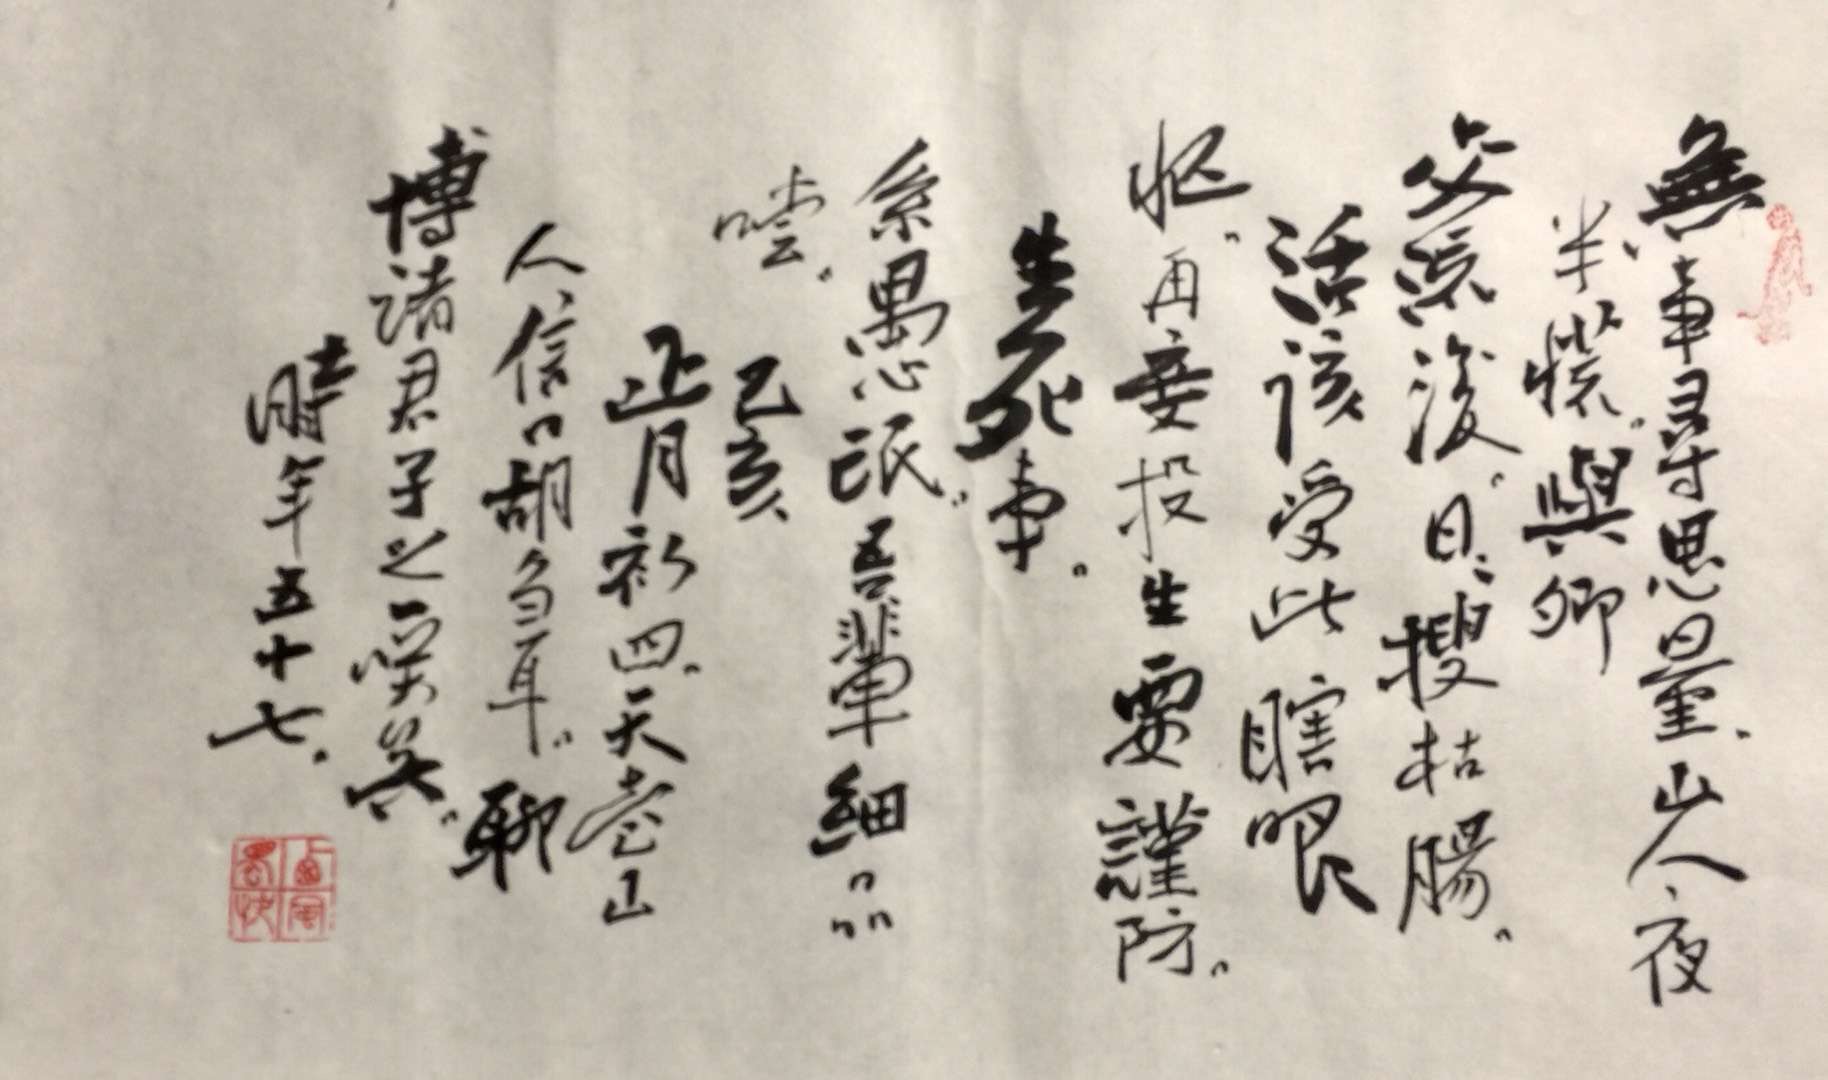 無事尋思量、山人夜
半慌。與卿
交流後。日、搜枯腸。
活該受此瞎眼
再妄投生要謹防。
生死事。
系愚氓。吾輩細品
嘗。己亥
正月初四。天臺山
人信口胡刍耳。聊
博諸君子之一笑兮。
時年五十七。